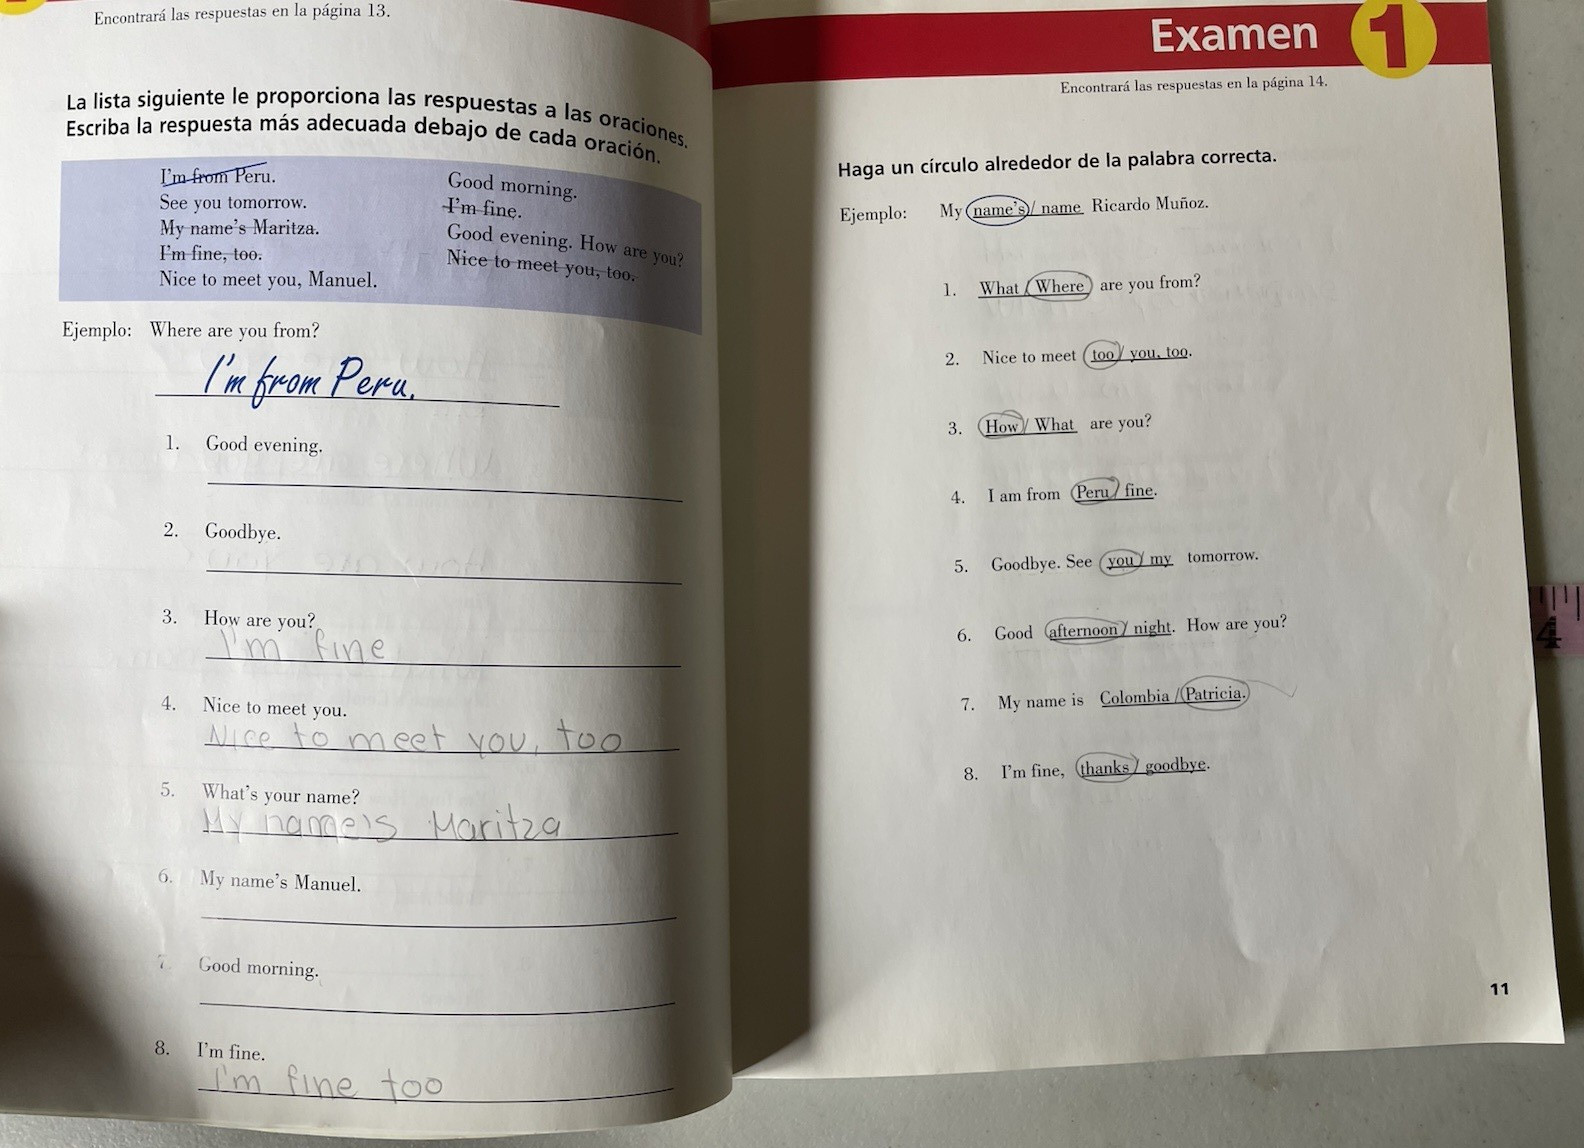 Encontrará las respuestas en la página 13.
La lista siguiente le proporciona las respuestas a las oraciones.
Escriba la respuesta más adecuada debajo de cada oración.
I'm from Peru.
See you tomorrow.
My name's Maritza.
I'm fine, too.
Nice to meet you, Manuel.
Good morning.
I'm fine.
Good evening. How are you?
Nice to meet you, too.
Ejemplo: Where are you from?
I'm from Peru.
1. Good evening.
2. Goodbye.
3. How are you?
I'm fine
4. Nice to meet you.
Nice to meet you, too
5. What's your name?
My name's Maritza
6. My name's Manuel.
7. Good morning.
8. I'm fine.
I'm fine too
Examen 1
Encontrará las respuestas en la página 14.
Haga un círculo alrededor de la palabra correcta.
Ejemplo: My name's / name Ricardo Muñoz.
1. What / Where are you from?
2. Nice to meet too / you, too.
3. How / What are you?
4. I am from Peru / fine.
5. Goodbye. See you / my tomorrow.
6. Good afternoon / night. How are you?
7. My name is Colombia / Patricia.
8. I'm fine, thanks / goodbye.
11
4